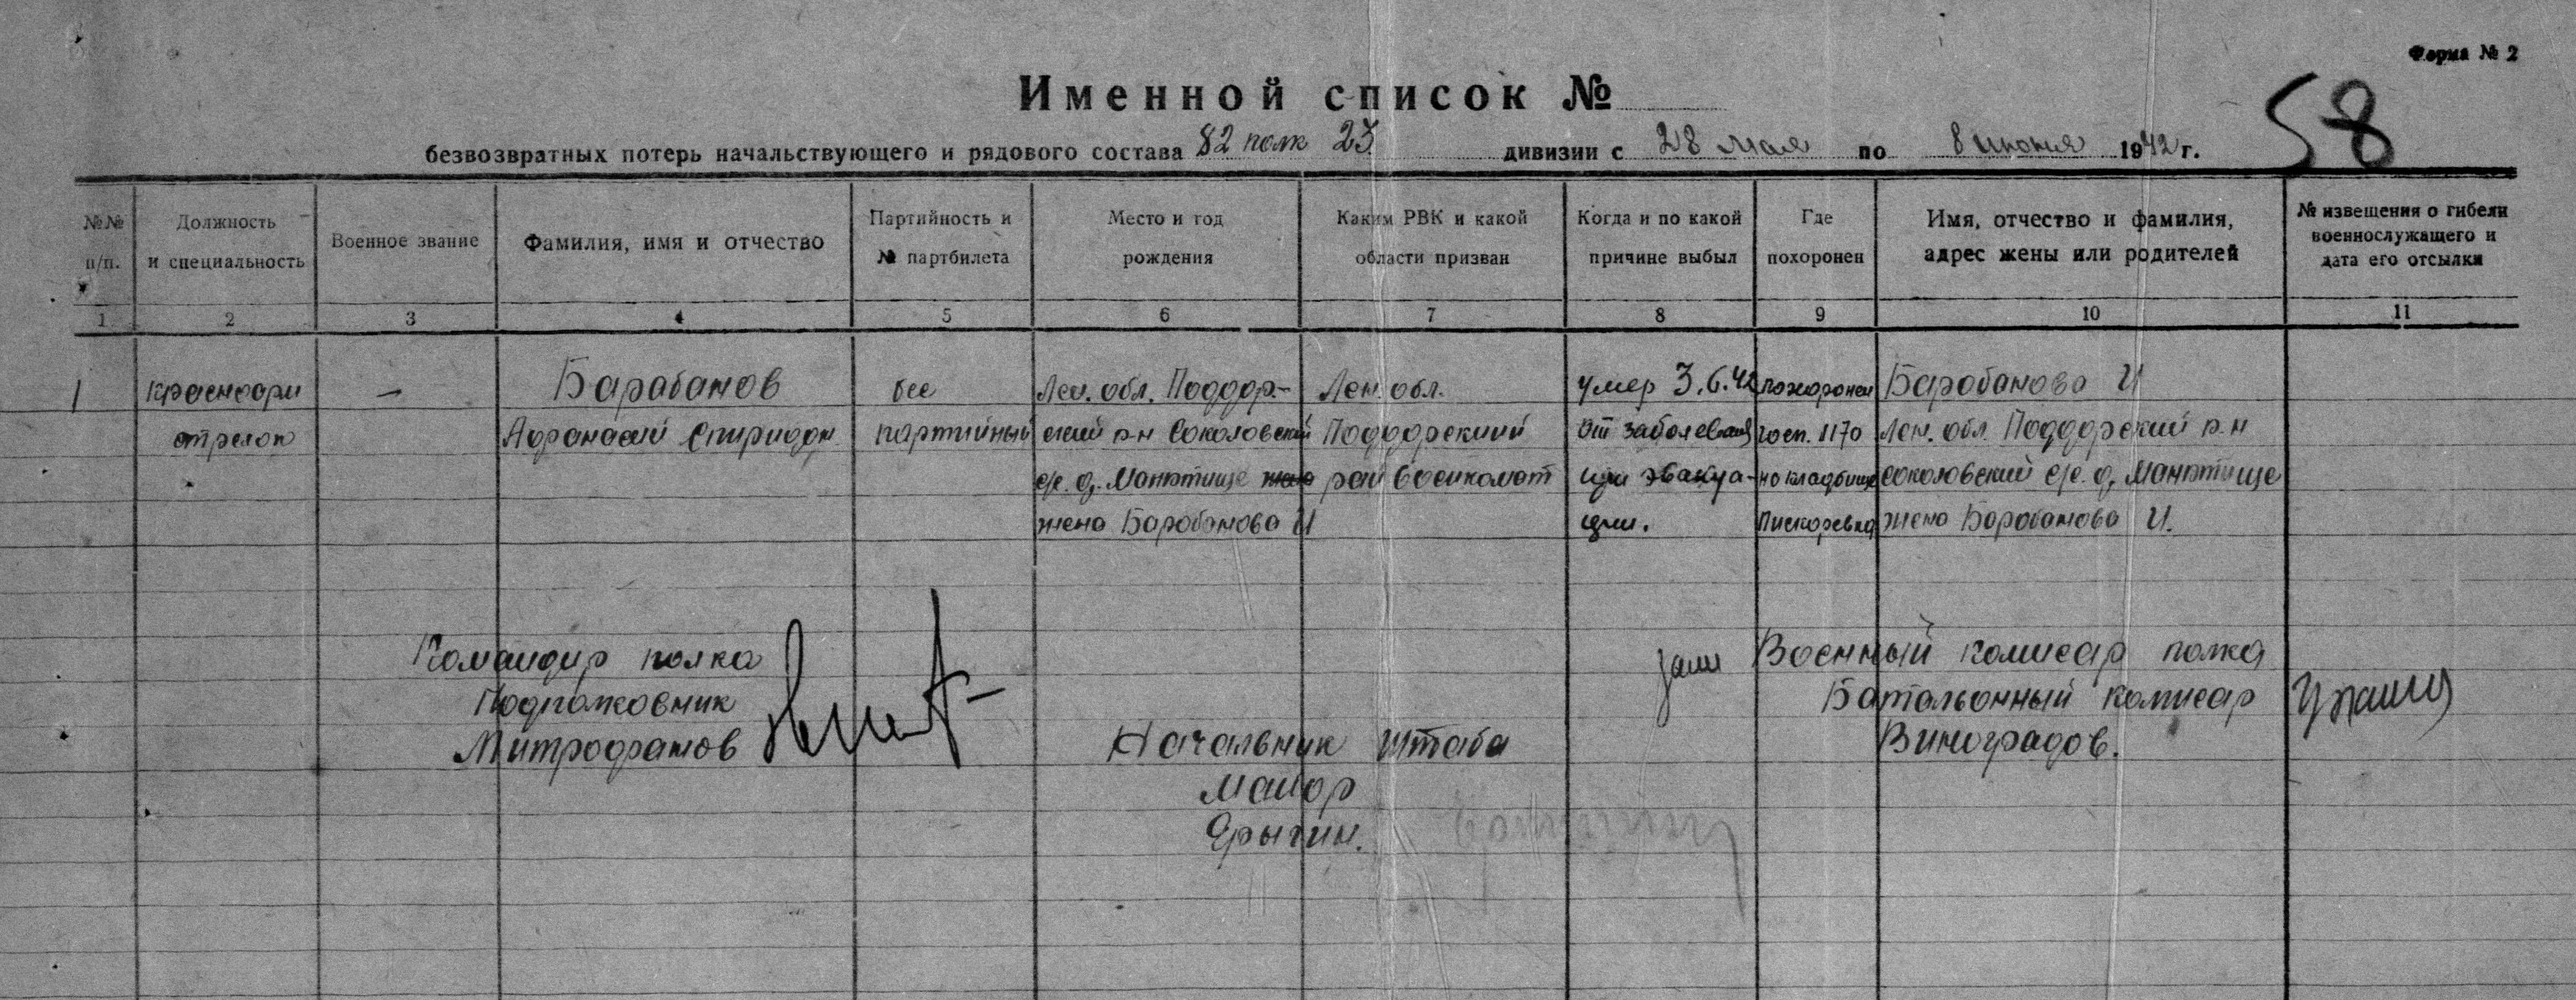 Форма № 2
Именной список №
58
безвозвратных потерь начальствующего и рядового состава 82 полк 23 дивизии с 28 мая по 8 июня 1942 г.
№№ п/п.
Должность и специальность
Военное звание
Фамилия, имя и отчество
Партийность и № партбилета
Место и год рождения
Каким РВК и какой области призван
Когда и по какой причине выбыл
Где похоронен
Имя, отчество и фамилия, адрес жены или родителей
№ извещения о гибели военнослужащего и дата его отсылки
1 2 3 4 5 6 7 8 9 10 11
1 красноарм — Барабанов бес Лен. обл. Поддор- Лен. обл. умер 3.6.42 похоронен Барабанова И
стрелок Афанасий Спиридон партийный ский р-н Соколовский Поддорский от заболеван госп. 1170 Лен. обл. Поддорский р-н
с/с. д. Манятище жена рай военкомат при эвакуа- на кладбище Соколовский с/с. д. Манятище
жена Барабанова И ции. Пискаревка жена Барабанова И.
Командир полка
Подполковник
Митрофанов
Начальник штаба
майор
Ерыгин.
Военный комисар полка
Батальонный комисар
Виноградов.